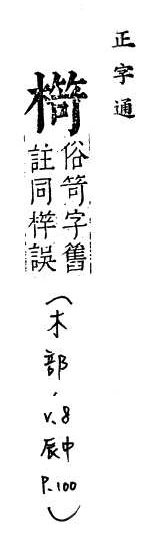 正字通
俗笴字舊
註同梓誤
(木部, v.8
辰中
P.100)